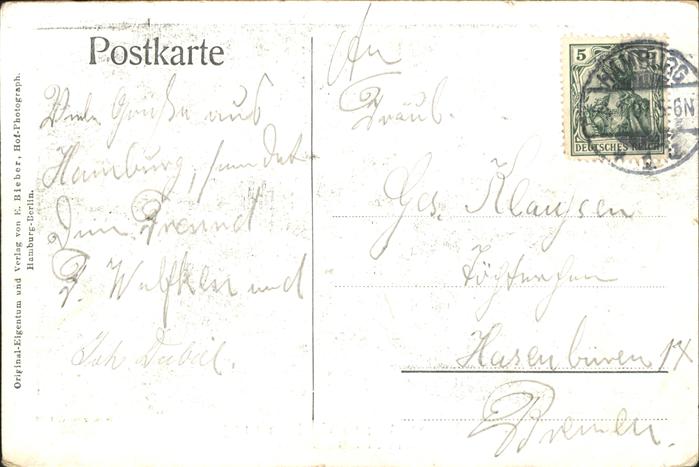 Postkarte
Viele Grüße aus
Hamburg, sendet
Dein Freund
F. Wulfken und
Joh
An
Fräul.
Ges. Klaussen
Töchterchen
Hasenbüren 1X
Bremen.
5
DEUTSCHES REICH
HAMBURG
6N
Original-Eigentum und Verlag von E. Bieber, Hof-Photograph.
Hamburg-Berlin.